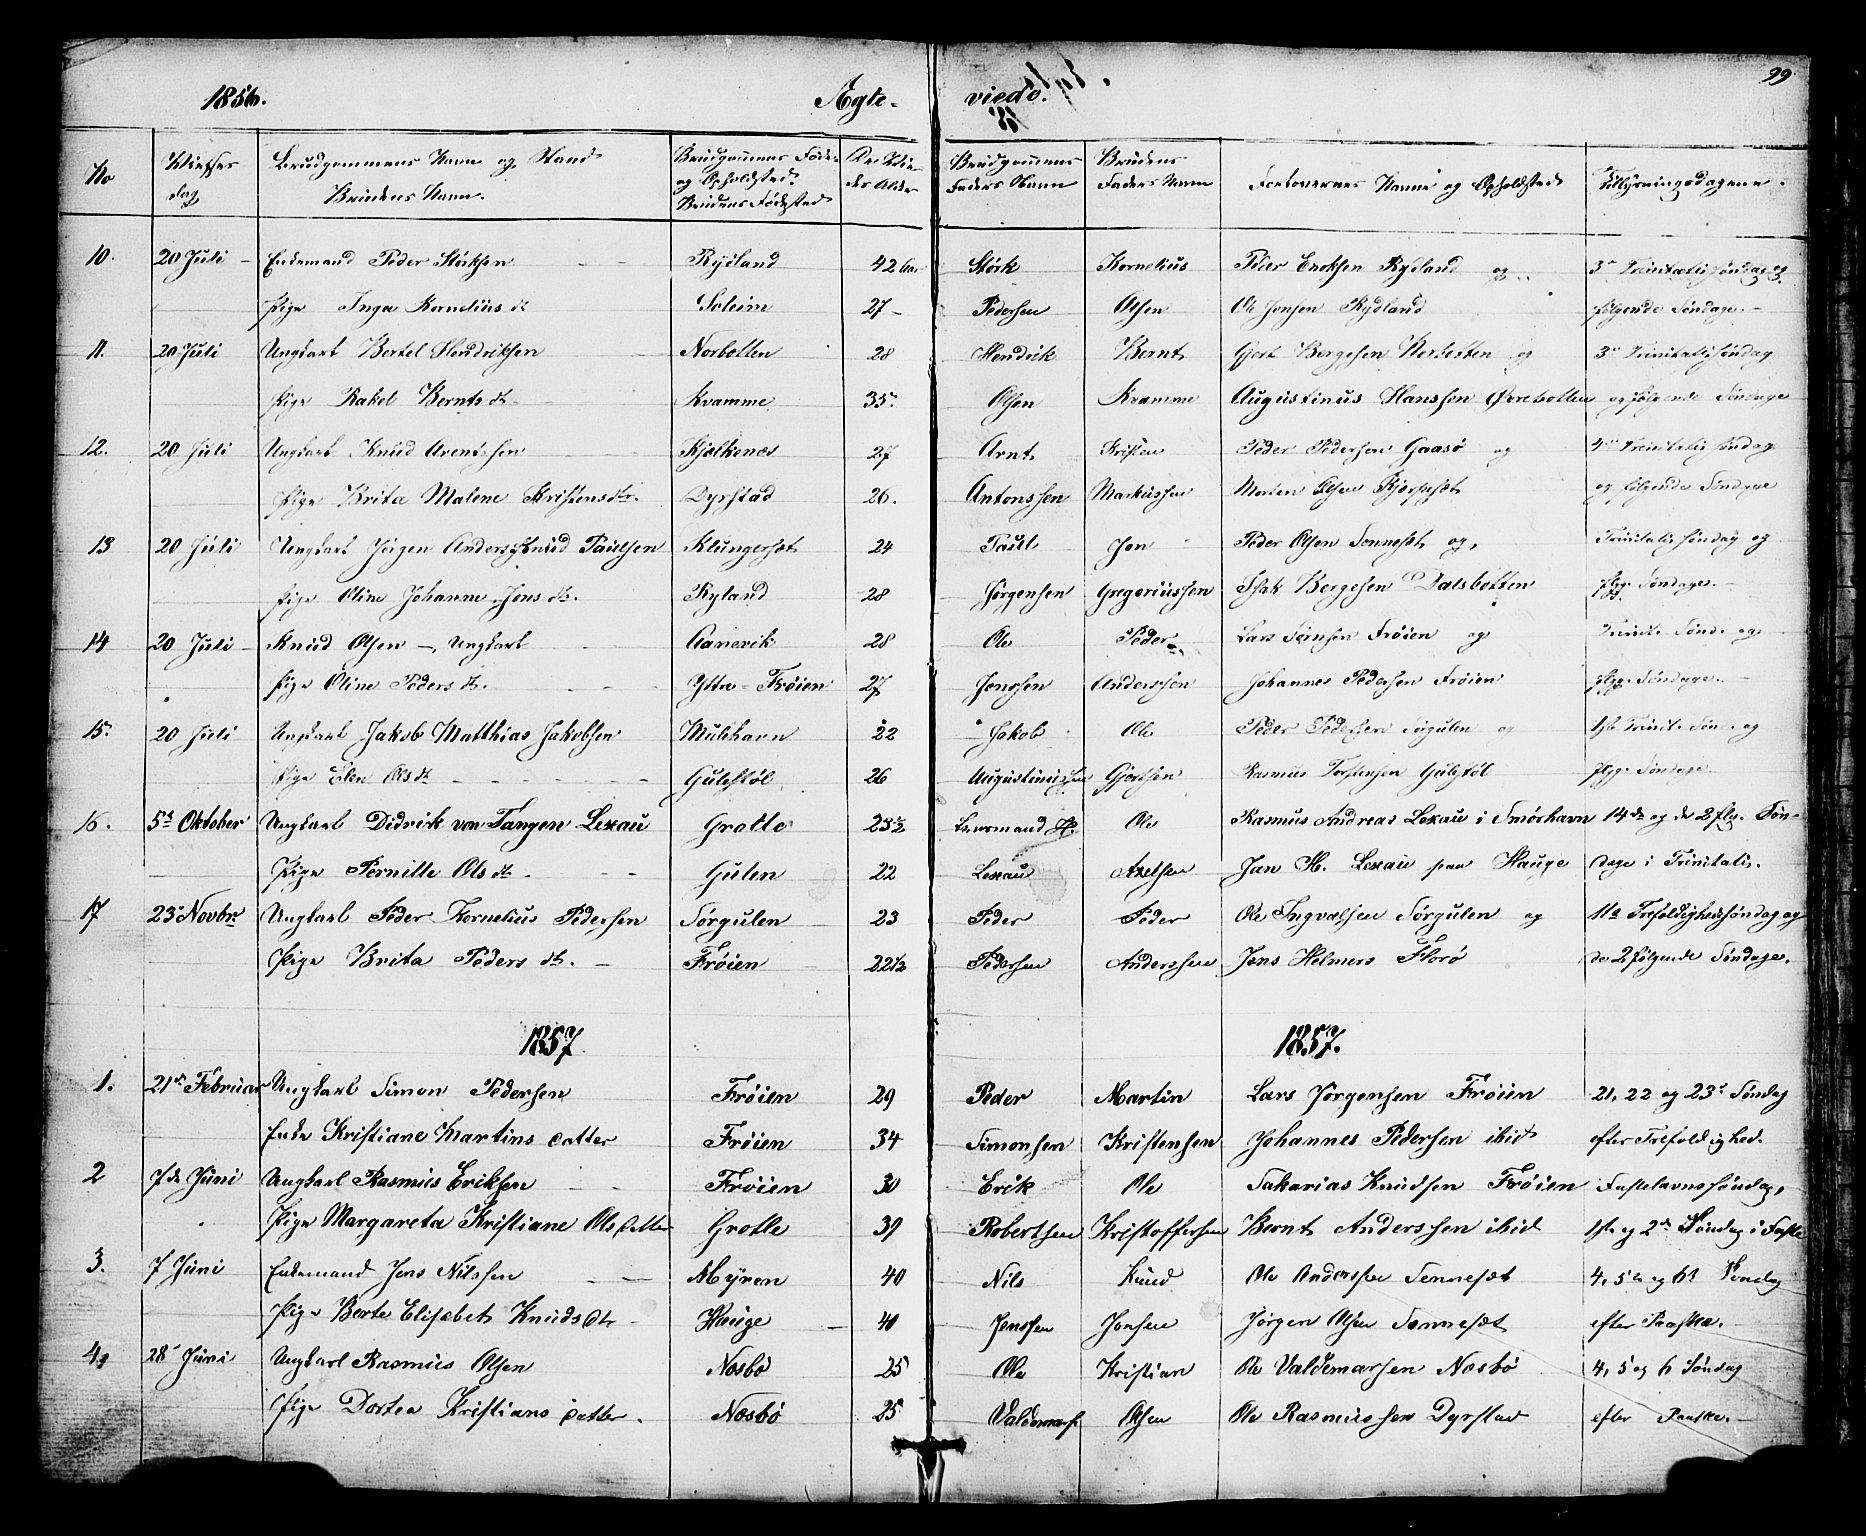 1856. Ægte- viede. 99
No Vielses dag Brudgommens Navn og Stand Brudens Navn. Brudgommens Føde- og Opholdsted. Brudens Fødested De Viedes Alder Brudgommens Faders Navn Brudens Faders Navn Forlovernes Navne og Opholdsted Tillysningsdagene.
10. 20 Juli Enkemand Peder Størksen Rydland 42 Aar Størk Kornelius Peder Enoksen Rydland og 3de Trinitatissøndag og
Pige Inga Kornelius dt Soleim 27 Pedersen Olsen Ole Jonsen Rydland følgende Søndage.
11. 20 Juli Ungkarl Bertel Hendriksen Norbotten 28 Hendrik Bernt Gjert Børgesen Norbotten og 3de Trinitatissøndag
Pige Rakel Bernts dt Kvamme 35 Olsen Kvamme Augustinus Hanssen Øvrebotten og følgende Søndage
12. 20 Juli Ungkarl Knud Arentssen Kjelkenes 27 Arnt Kristen Peder Pedersen Gaasø og 4de Trinitatis søndag
Pige Brita Malene Kristens dtr. Dyrstad 26. Antonssen Markussen Morten Olsen og følgende Søndage
13 20 Juli Ungkarl Jørgen Anders Knud Paulsen Klungerset 24 Paul Jon Peder Olsen Sennesæt og, Trinitatis søndag og
Pige Oline Johanne Jons dt. Ryland 28 Jørgensen Gregoriussen Isak Børgesen Dalsbotten flg. Søndage.
14 20 Juli Knud Olsen, Ungkarl Aanevik 28 Ole Peder Lars Frøien og Trinit. Sønd. og
Pige Oline Peders dt. Yttre-Frøien 27 Jonssen Anderssen Johannes Pedersen Frøien flg. Søndage.
15. 20 Juli Ungkarl Jakob Matthias Jakobsen Mulehavn 22 Jakob Ole Peder Pedersen Sørgulen og 1ste Trinit. Sønd. og
Pige Elen Ols dt Gulestøl 26 Augustinussen Gjertsen Rasmus Torstensen Gulestøl flg. Søndage
16. 5te Oktober Ungkarl Didrik von Tangen Lexau Grotle 23½ Lensmand H. Ole Rasmus Andreas Lexau i Smørhavn 14de og de 2 flg. Søn-
Pige Pernille Ols dt. Gulen 22 Lexau Axelsen Jan H. Lexau paa Hauge dage i Trinitatis.
17 23de Novbr. Ungkarl Peder Kornelius Pedersen Sørgulen 23 Peder Peder Ole Ingvalsen Sørgulen og 11te Trefoldighedssøndag og
Pige Brita Peders dt. Frøien 22½ Pedersen Anderssen Jens Helmers Florø de 2 følgende Søndage.
1857 1857.
1. 21de Februar Ungkarl Simon Pedersen Frøien 29 Peder Martin Lars Jørgensen Frøien 21, 22 og 23de Søndag
Enke Kristiane Martins datter Frøien 34 Simonsen Kristensen Johannes Pedersen ibid efter Trefoldighed.
2 7de Juni Ungkarl Rasmus Eriksen Frøien 30 Erik Ole Sakarias Knudsen Frøien Fastelavnssøndag,
Pige Margareta Kristiane Ols datter Grotle 39 Robertsen Kristoffersen Bernt Anderssen ibid 1ste og 2de Søndag i Faste
3. 7 Juni Enkemand Jens Nilssen Myren 40 Nils Knud Ole Anderssen Sennesæt 4, 5te og 6te Søndag
Pige Berte Elisabet Knuds dtr Hauge 40 Jenssen Jonsen Jørgen Olsen Sennesæt efter Paaske.
4, 28de Juni Ungkarl Rasmus Olsen Nesbø 25 Ole Kristian Ole Valdemarsen Næsbø 4, 5 og 6 Søndag
Pige Dortea Kristians datter. Næsbø 25 Valdemars. Olsen Ole Rasmussen Dyrstad efter Paaske.